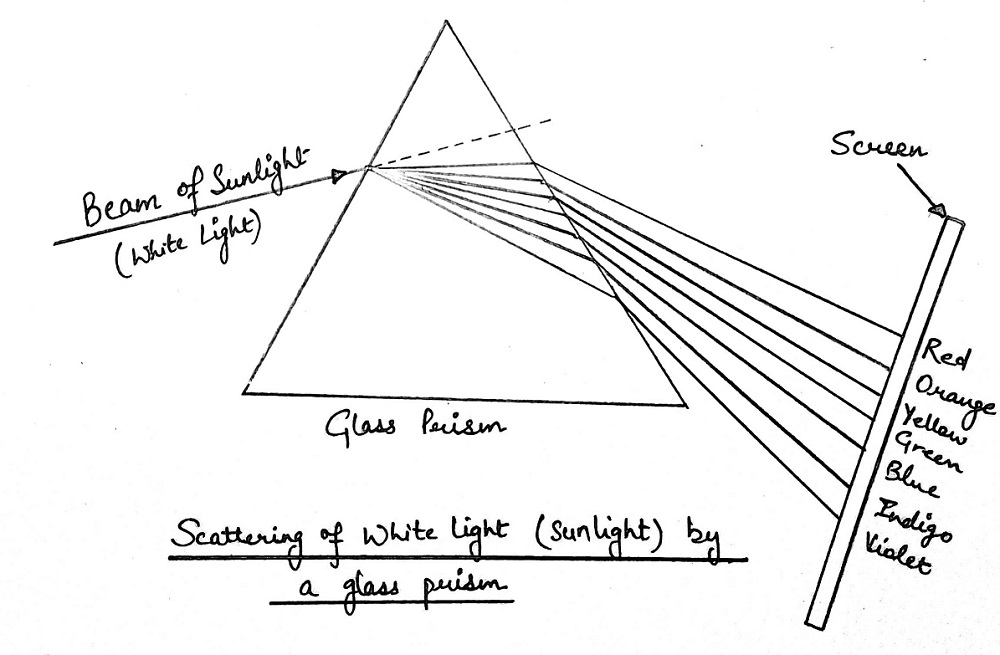 Screen
Beam of Sunlight
(White Light)
Red
Orange
Yellow
Green
Blue
Indigo
Violet
Glass Prism
Scattering of White Light (Sunlight) by
a glass prism